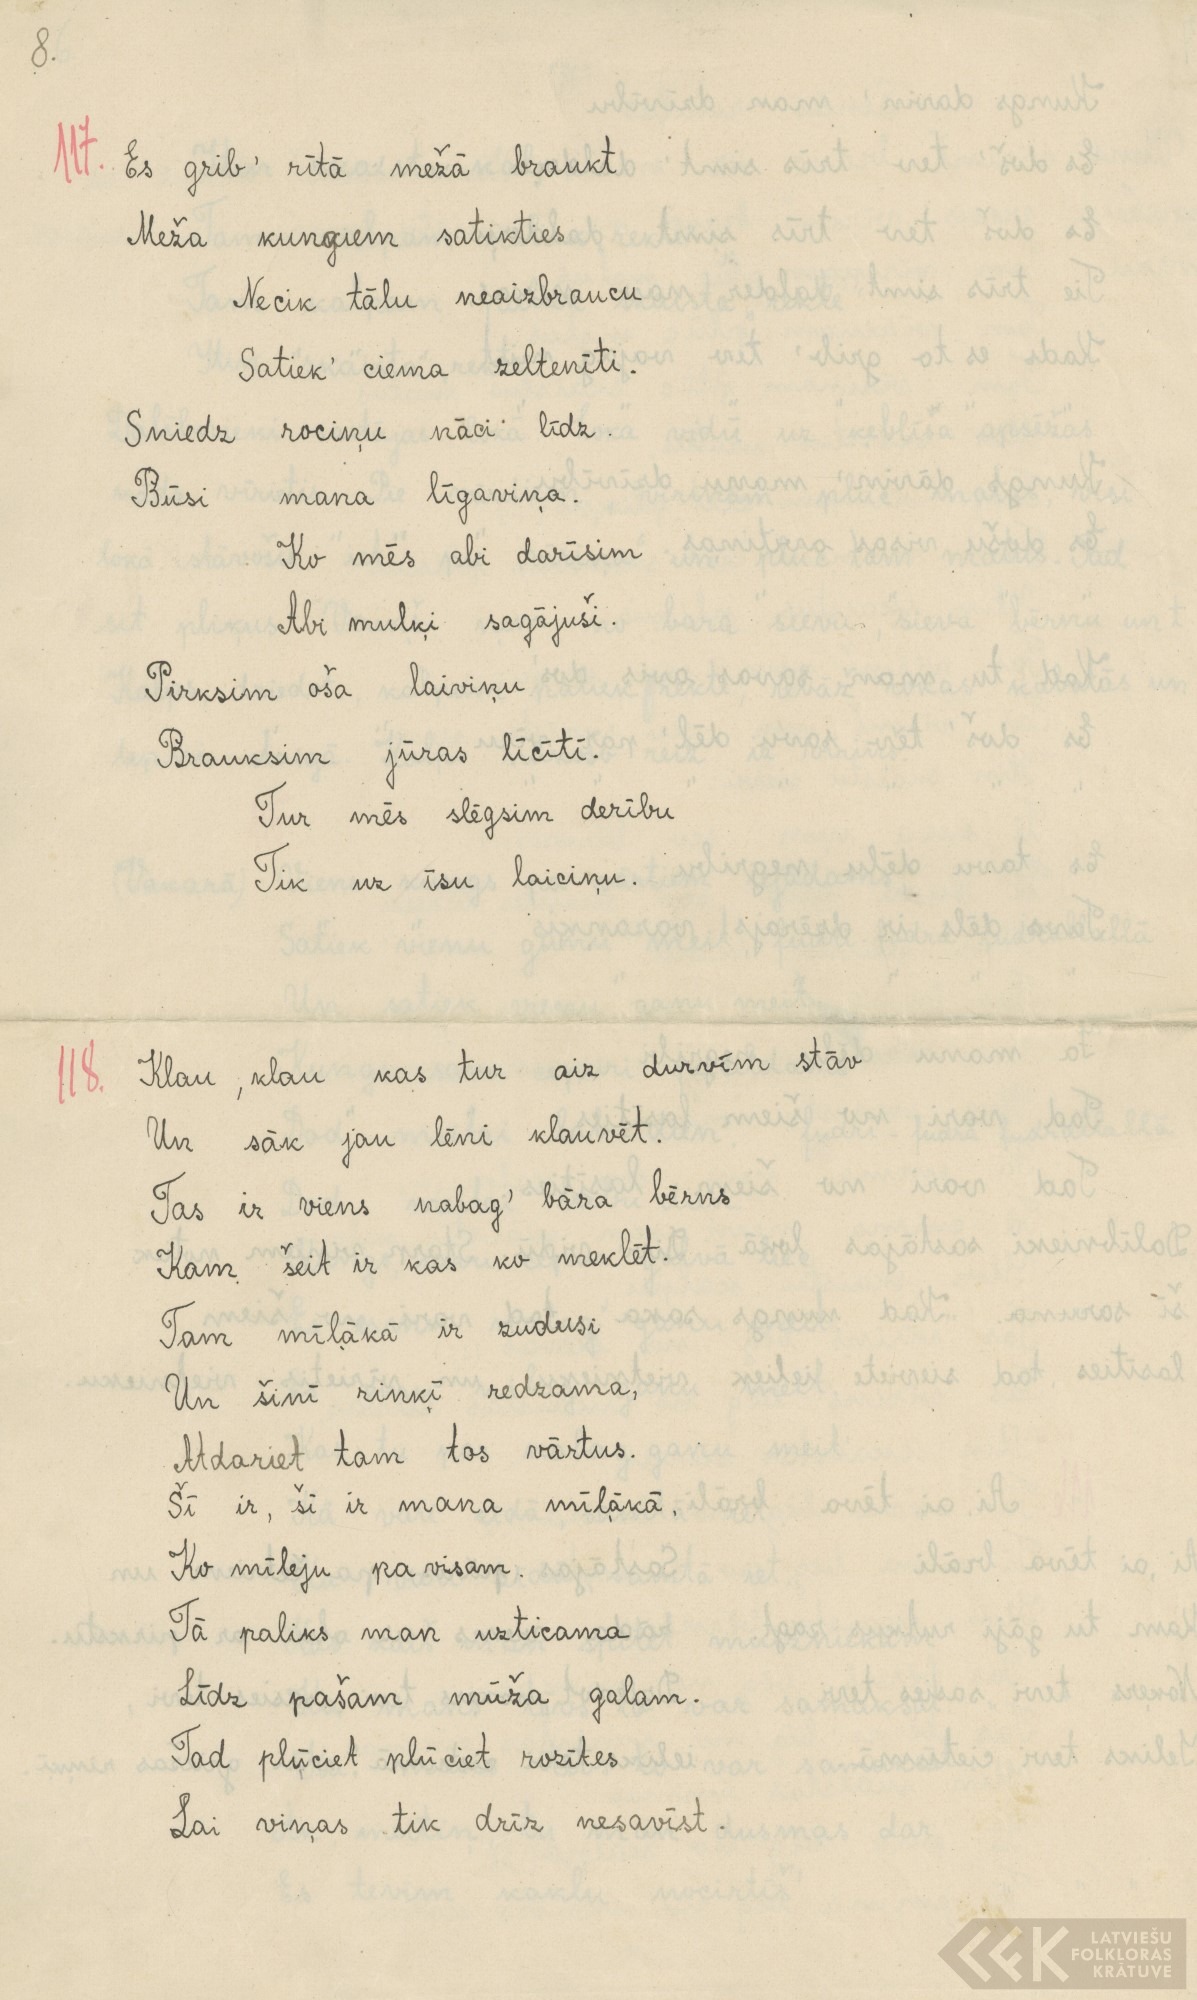 8.
117. Es grib' rītā mežā braukt
Meža kungiem satikties
Necik tālu neaizbraucu
Satiek' ciema zeltenīti.
Sniedz rociņu nāci līdz.
Būsi mana līgaviņa.
Ko mēs abi darīsim
Abi muļķi sagājuši.
Pirksim oša laiviņu
Brauksim jūras līcītī.
Tur mēs slēgsim derību
Tik uz īsu laiciņu.
118. Klau, klau kas tur aiz durvīm stāv
Un sāk jau lēni klauvēt.
Tas ir viens nabag' bāra bērns
Kam šeit ir kas ko meklēt.
Tam mīļākā ir zudusi
Un šinī riņķī redzama,
Atdariet tam tos vārtus.
Šī ir, šī ir mana mīļākā,
Ko mīleju pa visam.
Tā paliks man uzticama
Līdz pašam mūža galam.
Tad pļūciet plūciet rozītes
Lai viņas tik drīz nesavīst.
LATVIEŠU
FOLKLORAS
KRĀTUVE